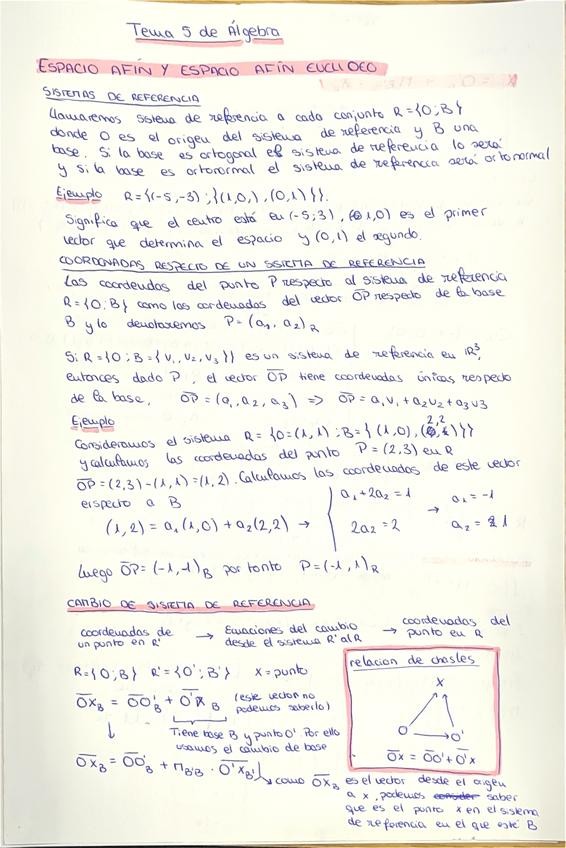 Tema 5 de Álgebra
ESPACIO AFÍN Y ESPACIO AFÍN EUCLIDEO
SISTEMAS DE REFERENCIA
Llamaremos sistema de referencia a cada conjunto R={O;B}
donde O es el origen del sistema de referencia y B una
base. Si la base es ortogonal el sistema de referencia lo será
y si la base es ortonormal el sistema de referencia será ortonormal
Ejemplo R={(-5,-3);{(1,0,),(0,1)}}.
Significa que el centro está en (-5;3), (1,0) es el primer
vector que determina el espacio y (0,1) el segundo.
COORDENADAS RESPECTO DE UN SISTEMA DE REFERENCIA
Las coordenadas del punto P respecto al sistema de referencia
R={O;B} como las cordenadas del vector OP respecto de la base
B y lo denotaremos P=(a₁,a₂)R
Si R={O;B={v₁,v₂,v₃}} es un sistema de referencia en ℝ³,
entonces dado P, el vector OP tiene coordenadas únicas respecto
de la base, OP=(a₁,a₂,a₃) => OP=a₁v₁+a₂v₂+a₃v₃
Ejemplo
Consideramos el sistema R={O=(1,1);B={(1,0),(2,2)}}
y calculamos las coordenadas del punto P=(2,3) en R
OP=(2,3)-(1,1)=(1,2). Calculamos las coordenadas de este vector
erspecto a B
(1,2)=a₁(1,0)+a₂(2,2) → { a₁+2a₂=1 → a₁=-1
2a₂=2 a₂=1
Luego OP=(-1,-1)B por tanto P=(-1,1)R
CAMBIO DE SISTEMA DE REFERENCIA
coordenadas de un punto en R' → Ecuaciones del cambio desde el sistema R' al R → coordenadas del punto en R
R={O;B} R'={O';B'} X=punto
OX B = OO' B + O'X B (este vector no podemos saberlo)
↓ Tiene base B y punto O'. Por ello usamos el cambio de base
OX B = OO' B + M B'B · O'X B'
relacion de chasles
X
O → O'
OX = OO' + O'X
como OX B es el vector desde el origen
a x, podemos saber
que es el punto x en el sistema
de referencia en el que esté B